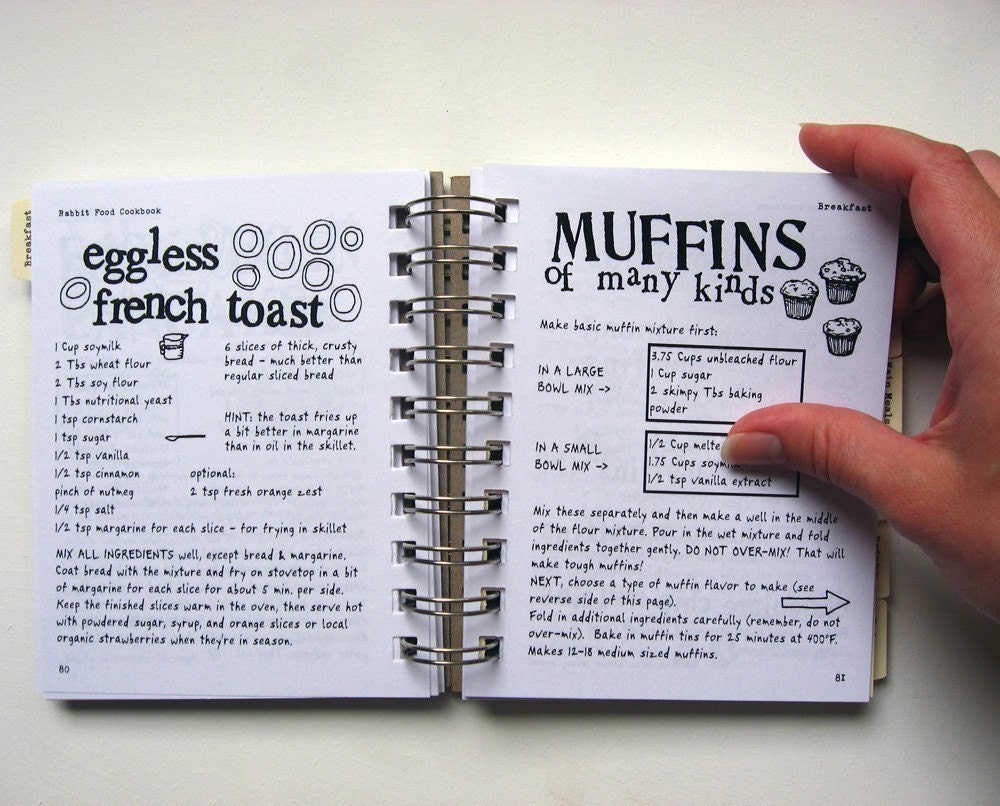 Breakfast
Rabbit Food Cookbook
eggless
french toast
1 Cup soymilk
2 Tbs wheat flour
2 Tbs soy flour
1 Tbs nutritional yeast
1 tsp cornstarch
1 tsp sugar
1/2 tsp vanilla
1/2 tsp cinnamon
pinch of nutmeg
1/4 tsp salt
1/2 tsp margarine for each slice - for frying in skillet
6 slices of thick, crusty
bread - much better than
regular sliced bread
HINT: the toast fries up
a bit better in margarine
than in oil in the skillet.
optional:
2 tsp fresh orange zest
MIX ALL INGREDIENTS well, except bread & margarine.
Coat bread with the mixture and fry on stovetop in a bit
of margarine for each slice for about 5 min. per side.
Keep the finished slices warm in the oven, then serve hot
with powdered sugar, syrup, and orange slices or local
organic strawberries when they're in season.
80
Breakfast
MUFFINS
of many kinds
Make basic muffin mixture first:
IN A LARGE
BOWL MIX ->
3.75 Cups unbleached flour
1 Cup sugar
2 skimpy Tbs baking
powder
IN A SMALL
BOWL MIX ->
1/2 Cup melte
1.75 Cups soym
1/2 tsp vanilla extract
Mix these separately and then make a well in the middle
of the flour mixture. Pour in the wet mixture and fold
ingredients together gently. DO NOT OVER-MIX! That will
make tough muffins!
NEXT, choose a type of muffin flavor to make (see
reverse side of this page).
Fold in additional ingredients carefully (remember, do not
over-mix). Bake in muffin tins for 25 minutes at 400°F.
Makes 12-18 medium sized muffins.
81
Main Meals